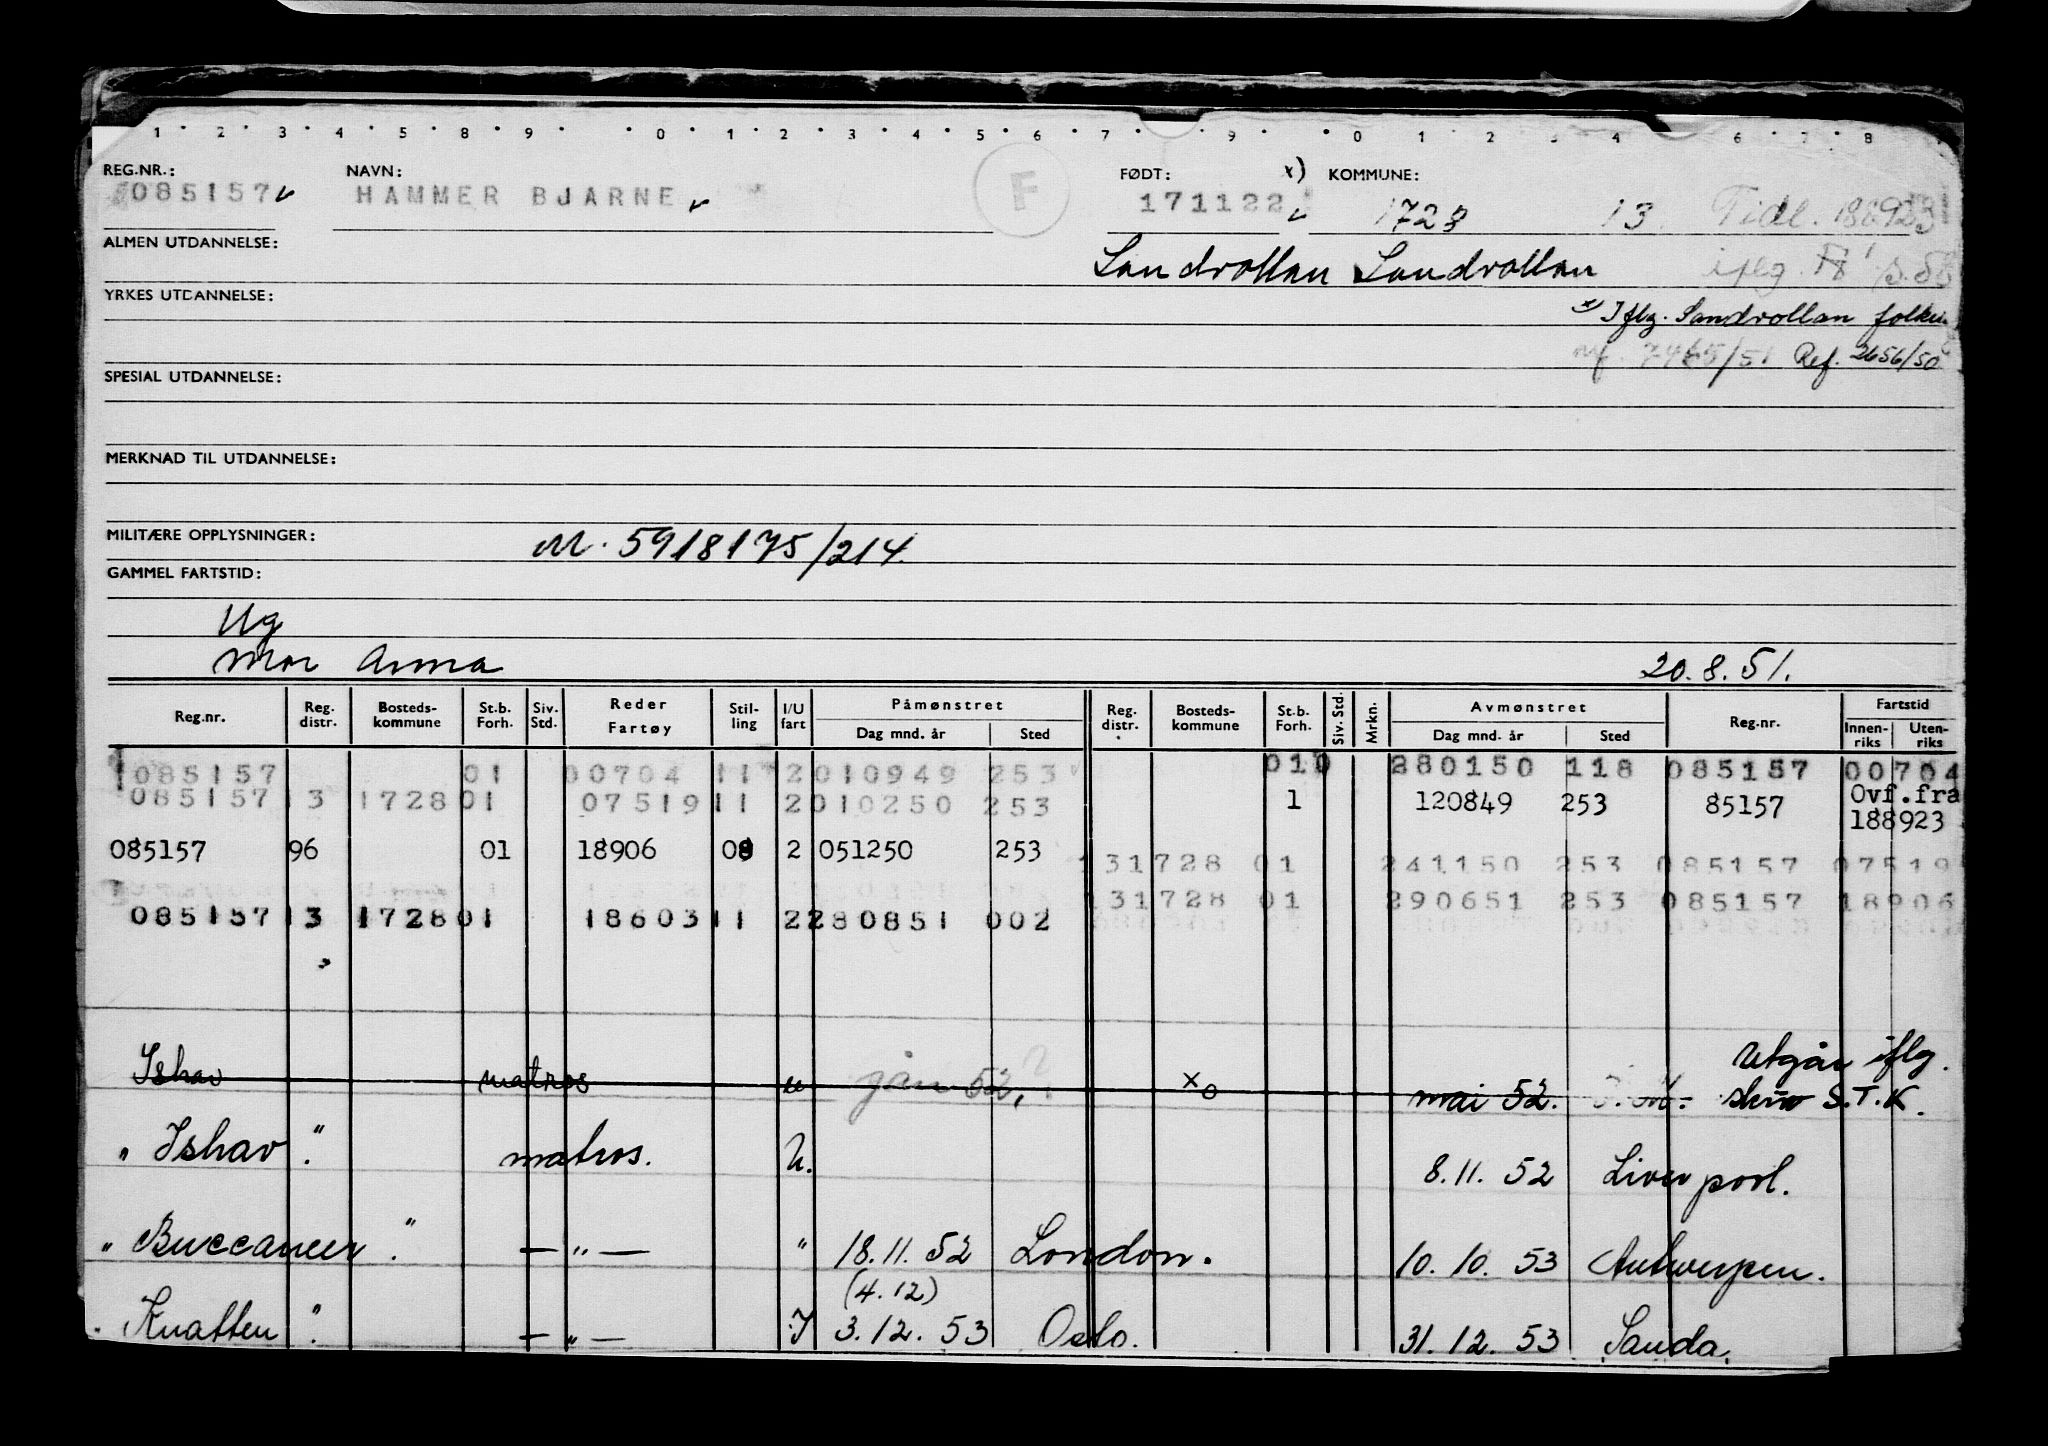 1 2 3 4 5 6 8 9 0 1 2 3 4 5 6 7 9 0 1 2 3 4 6 7 8
REG.NR.: NAVN: FØDT: x) KOMMUNE:
085157 HAMMER BJARNE F 171122 1728 13 Tidl. 188923
ALMEN UTDANNELSE: Sandvollan Sandvollan iflg.
YRKES UTDANNELSE: x) Iflg. Sandvollan folkereg
7465/51 Ref. 2656/50
SPESIAL UTDANNELSE:
MERKNAD TIL UTDANNELSE:
MILITÆRE OPPLYSNINGER: M. 5918175/214.
GAMMEL FARTSTID:
Ug
Mor Anna 20.8.51.
Reg.nr. Reg. distr. Bosteds-kommune St.b. Forh. Siv. Std. Reder Fartøy Stil-ling I/U fart Påmønstret Dag mnd. år Sted Reg. distr. Bosteds-kommune St.b. Forh. Siv. Std. Mrkn. Avmønstret Dag mnd. år Sted Reg.nr. Fartstid Innen-riks Uten-riks
085157 01 00704 11 2 010949 253 010 280150 118 085157 00704
085157 13 1728 01 07519 11 2 010250 253 1 120849 253 85157 Ovf.fra 188923
085157 96 01 18906 08 2 051250 253 131728 01 241150 253 085157 07519
131728 01 290651 253 085157 18906
085157 13 1728 01 18603 11 2 280851 002
Ishav matros u jan 52. ? xo mai 52. Utgår iflg. skriv S.T.K.
"Ishav". matros. U. 8.11.52 Liverpool.
"Buccaneer". — " — " 18.11.52 London. 10.10.53 Antwerpen.
(4.12)
"Knatten". — " — I 3.12.53 Oslo. 31.12.53 Sauda.